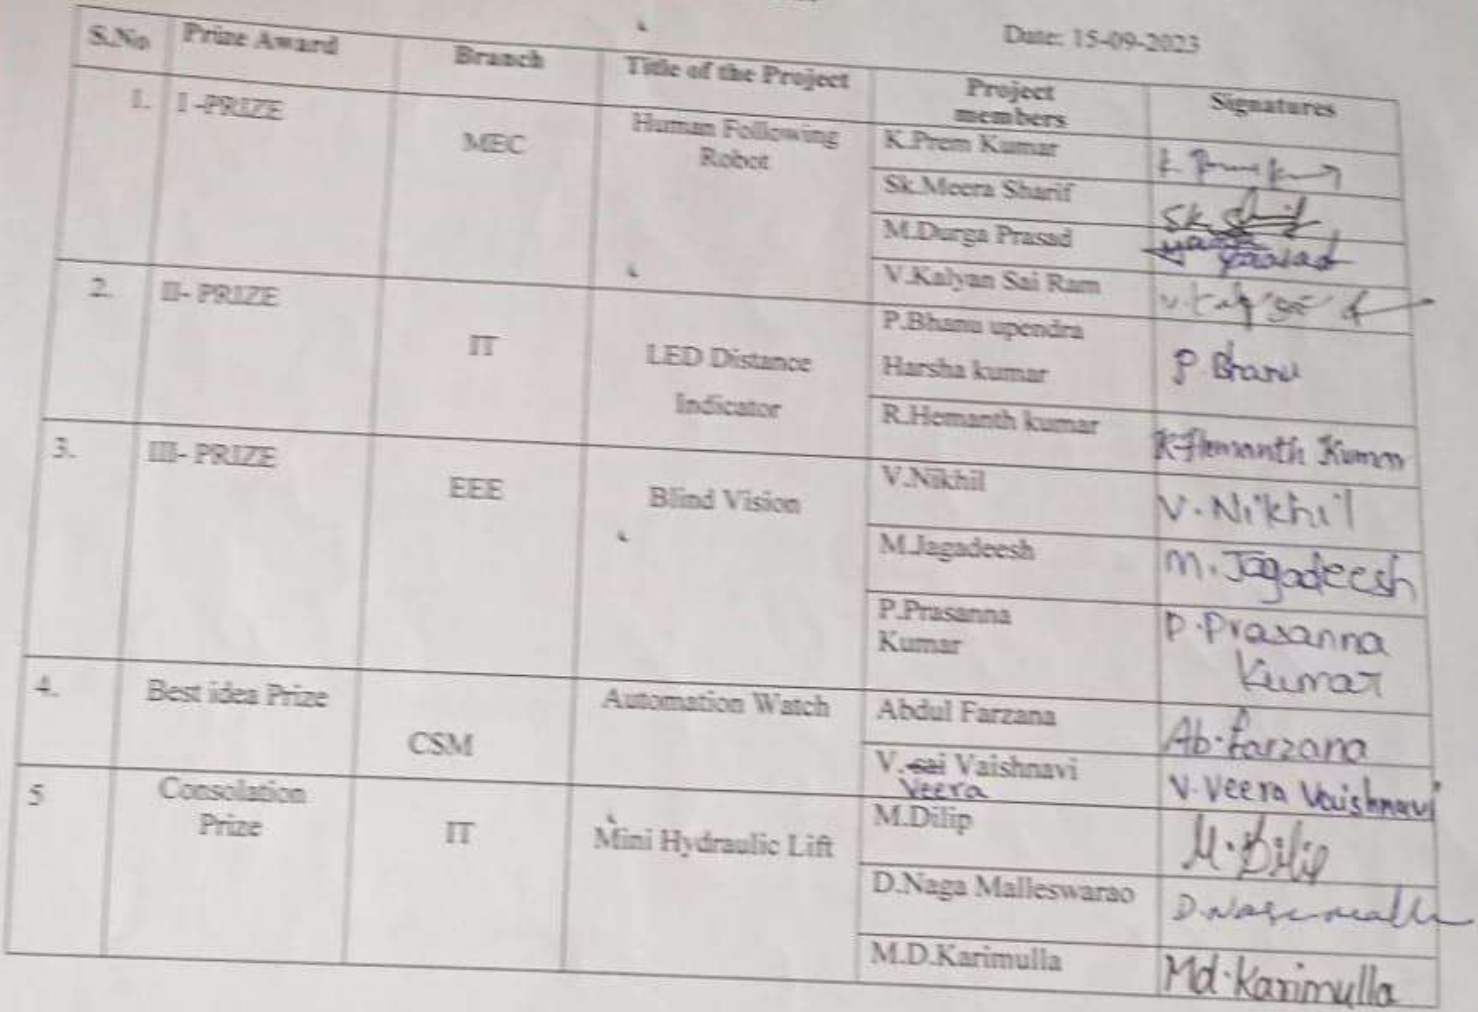 Date: 15-09-2023
S.No Prize Award Branch Title of the Project Project members Signatures
1. I -PRIZE MEC Human Following Robot
K.Prem Kumar
Sk.Meera Sharif Sk
M.Durga Prasad Prasad
V.Kalyan Sai Ram
2. II- PRIZE IT LED Distance Indicator
P.Bhanu upendra
Harsha kumar P. Bhanu
R.Hemanth kumar R. Hemanth Kumar
3. III- PRIZE EEE Blind Vision
V.Nikhil V. Nikhil
M.Jagadeesh M. Jagadeesh
P.Prasanna Kumar P. Prasanna Kumar
4. Best idea Prize CSM Automation Watch
Abdul Farzana Ab. farzana
V. sai Vaishnavi V. Veera Vaishnavi
Veera
5 Consolation Prize IT Mini Hydraulic Lift
M.Dilip M. Dilip
D.Naga Malleswarao
M.D.Karimulla Md. Karimulla